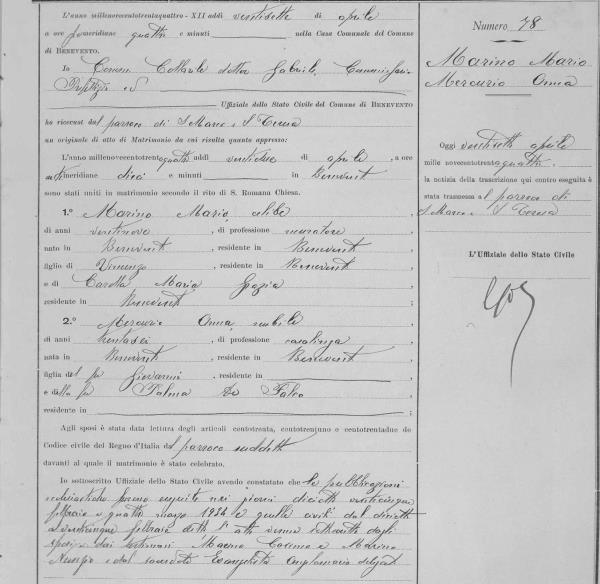 L'anno millenovecentotrentaquattro - XII addì ventisette di aprile
a ore pomeridiane quattro e minuti nella Casa Comunale del Comune
di BENEVENTO.
Io Cerone Cottrale dottor Gabriele, Commissario
Prefettizio
Uffiziale dello Stato Civile del Comune di BENEVENTO
ho ricevuto dal parroco di S Marco e S Teresa
un originale di atto di Matrimonio da cui risulta quanto appresso:
L'anno millenovecentotrentaquattro addì di aprile, a ore
antimeridiane dieci e minuti in Benevento
sono stati uniti in matrimonio secondo il rito di S. Romana Chiesa.
1.° Marino Mario, celibe
di anni ventinove, di professione muratore,
nato in Benevento, residente in Benevento
figlio di Vincenzo, residente in Benevento
e di Carolla Maria Grazia
residente in Benevento;
2.° Mercurio Anna, nubile
di anni trentasei, di professione casalinga
nata in Benevento, residente in Benevento
figlia del fu Giovanni, residente in ,
e della fu Palma De Falco
residente in ;
Agli sposi è stata data lettura degli articoli centotrenta, centotrentuno e centotrentadue del
Codice civile del Regno d'Italia dal parroco suddetto
davanti al quale il matrimonio è stato celebrato.
Io sottoscritto Uffiziale dello Stato Civile avendo constatato che le pubblicazioni
ecclesiastiche furono eseguite nei giorni diciotto venticinque
febbraio e quattro marzo 1934 e quelle civili dal diciotto
al venticinque febbraio detto l'atto venne sottoscritto dagli
sposi, dai testimoni Cosimo e Marino
Nunzio e dal sacerdote Evangelista delegato
Numero 78
Marino Mario
Mercurio Anna
Oggi ventisette aprile
mille novecentotrentaquattro
la notizia della trascrizione qui contro eseguita è
stata trasmessa al parroco di
S Marco e S Teresa
L'Uffiziale dello Stato Civile